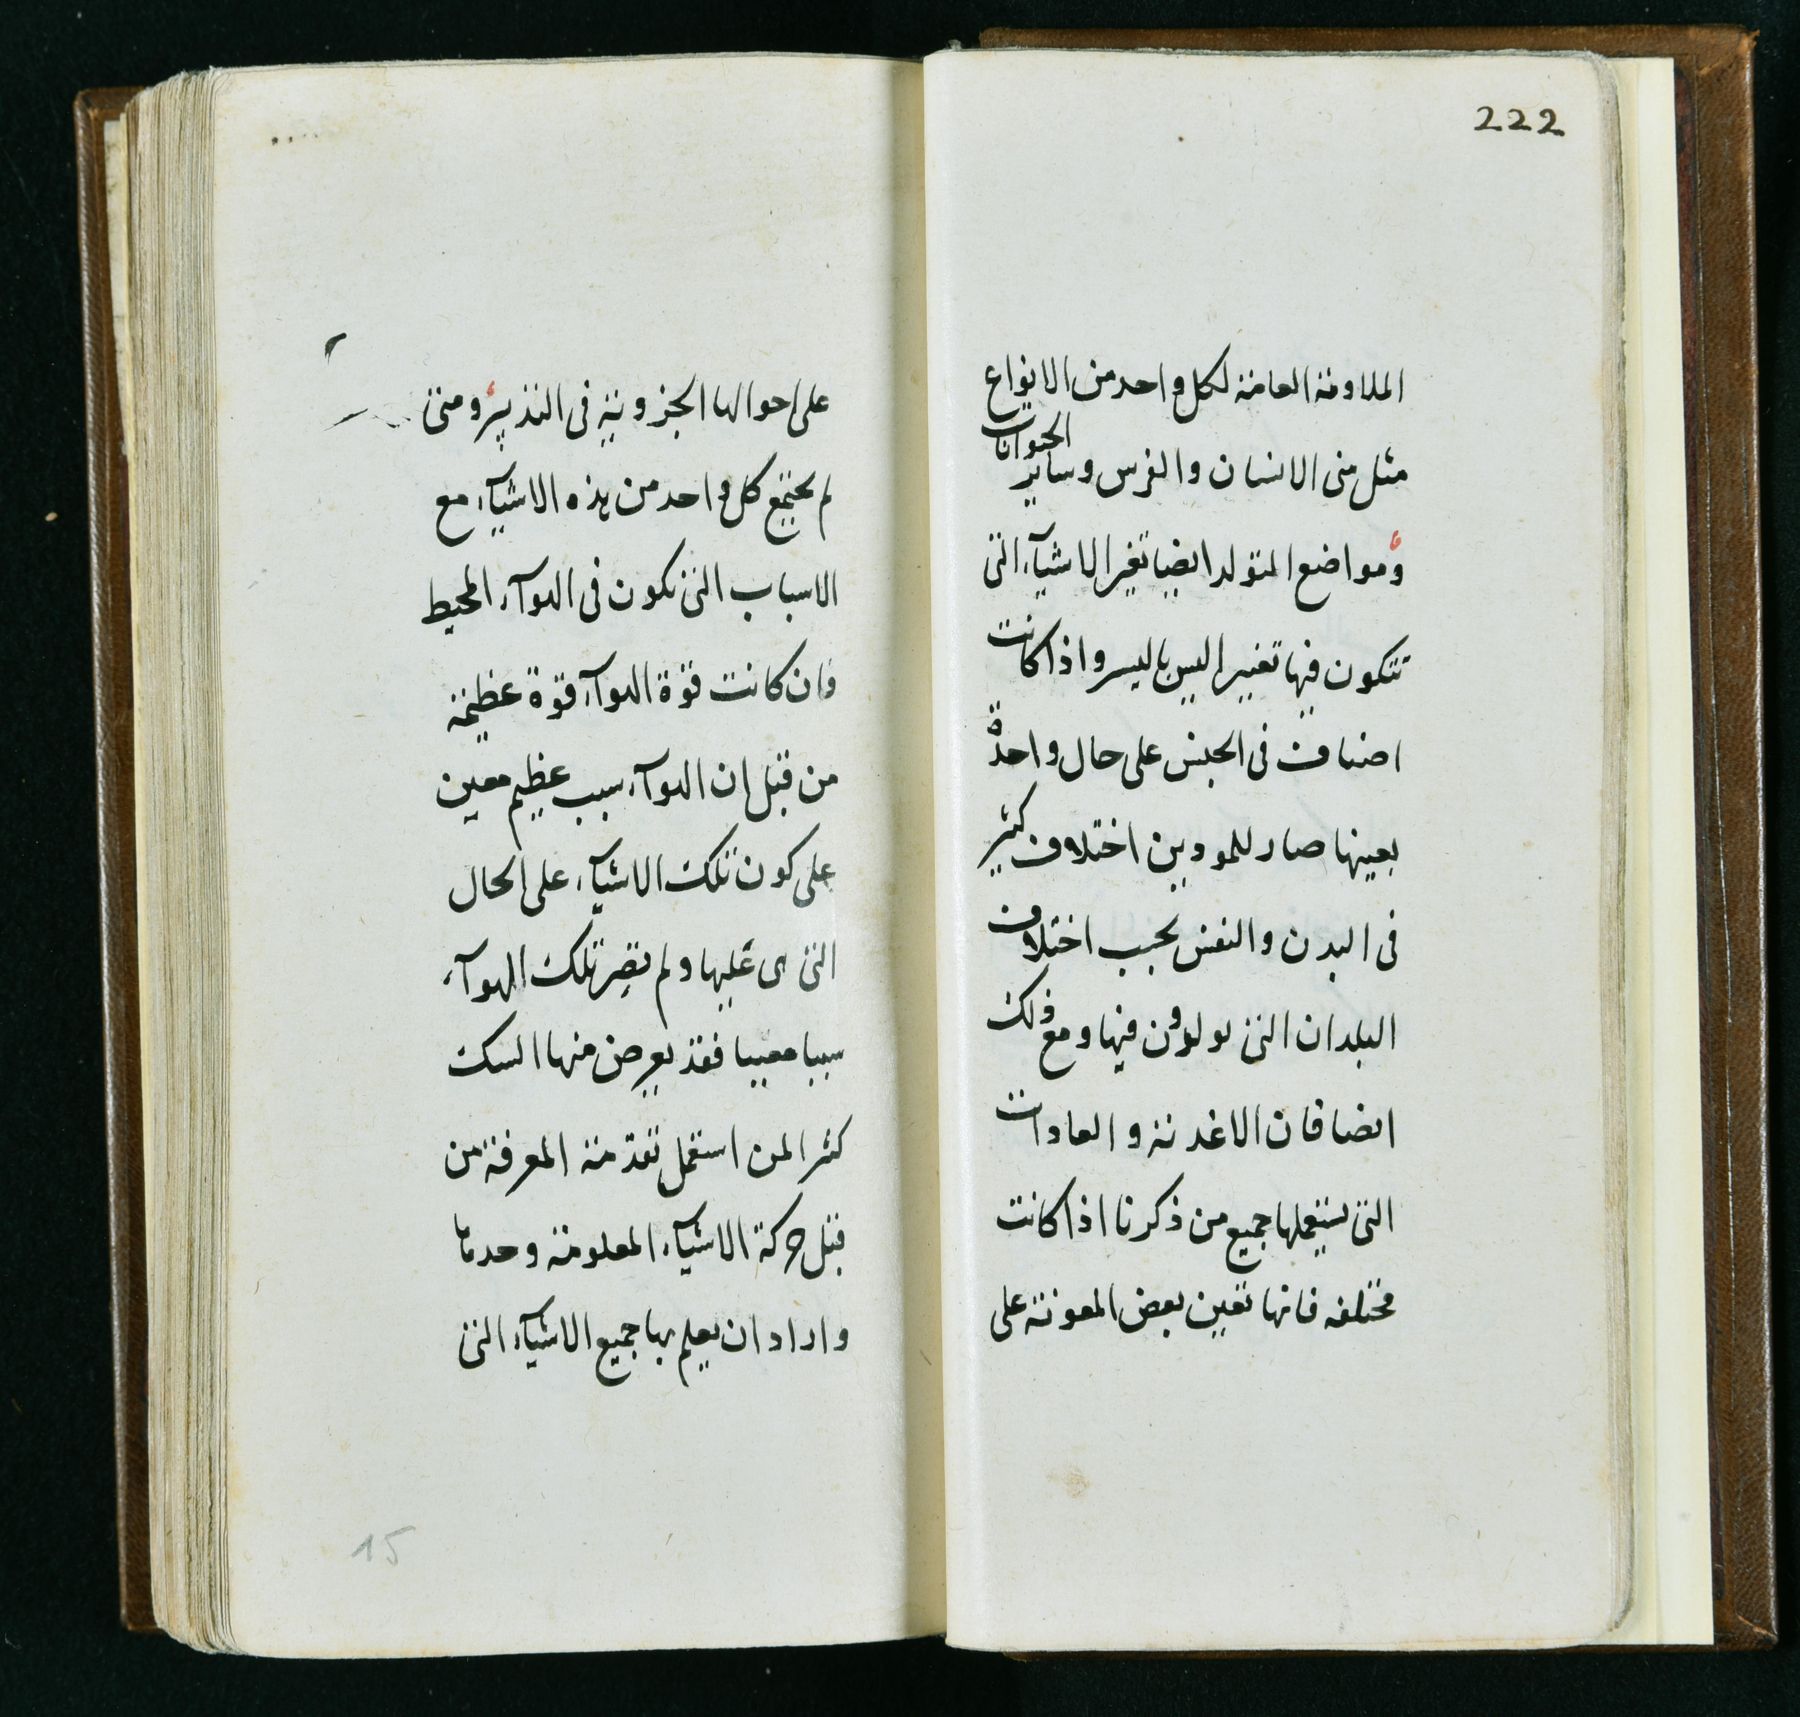 222
الملاومة العامة لكل واحد من الانواع
مثل منى الانسان والفرس وساير الحيوانات
ومواضع المتولد ايضا تغير الاشياء التى
تتكون فيها تغييرا ليس باليسر واذا كانت
اصناف فى الجنس على حال واحدة
بعينها صار للمودين اختلاف كثير
فى البدن والنفس بحسب اختلاف
البلدان التى يولدون فيها ومع ذلك
ايضا فان الاغدية والعادات
التى يستعملها جميع من ذكرنا اذا كانت
مختلفه فانها تعين بعض المعونة على
على احوالها الجزوية فى التدبير ومتى
لم يجتمع كل واحد من هذه الاشيآء مع
الاسباب التى تكون فى الهوآء المحيط
فان كانت قوة الهوآء قوة عظيمة
من قبل ان الهوآء سبب عظيم معين
على كون تلك الاشيآء على الحال
التى هى عليها ولم تصر تلك الهوآء
سببا معيبا فقد يعرض منها الشك
كثيرا لمن استعمل تقدمة المعرفة من
قبل حركة الاشيآء المعلومة وحدها
واراد ان يعلم بها جميع الاشيآء التى
15